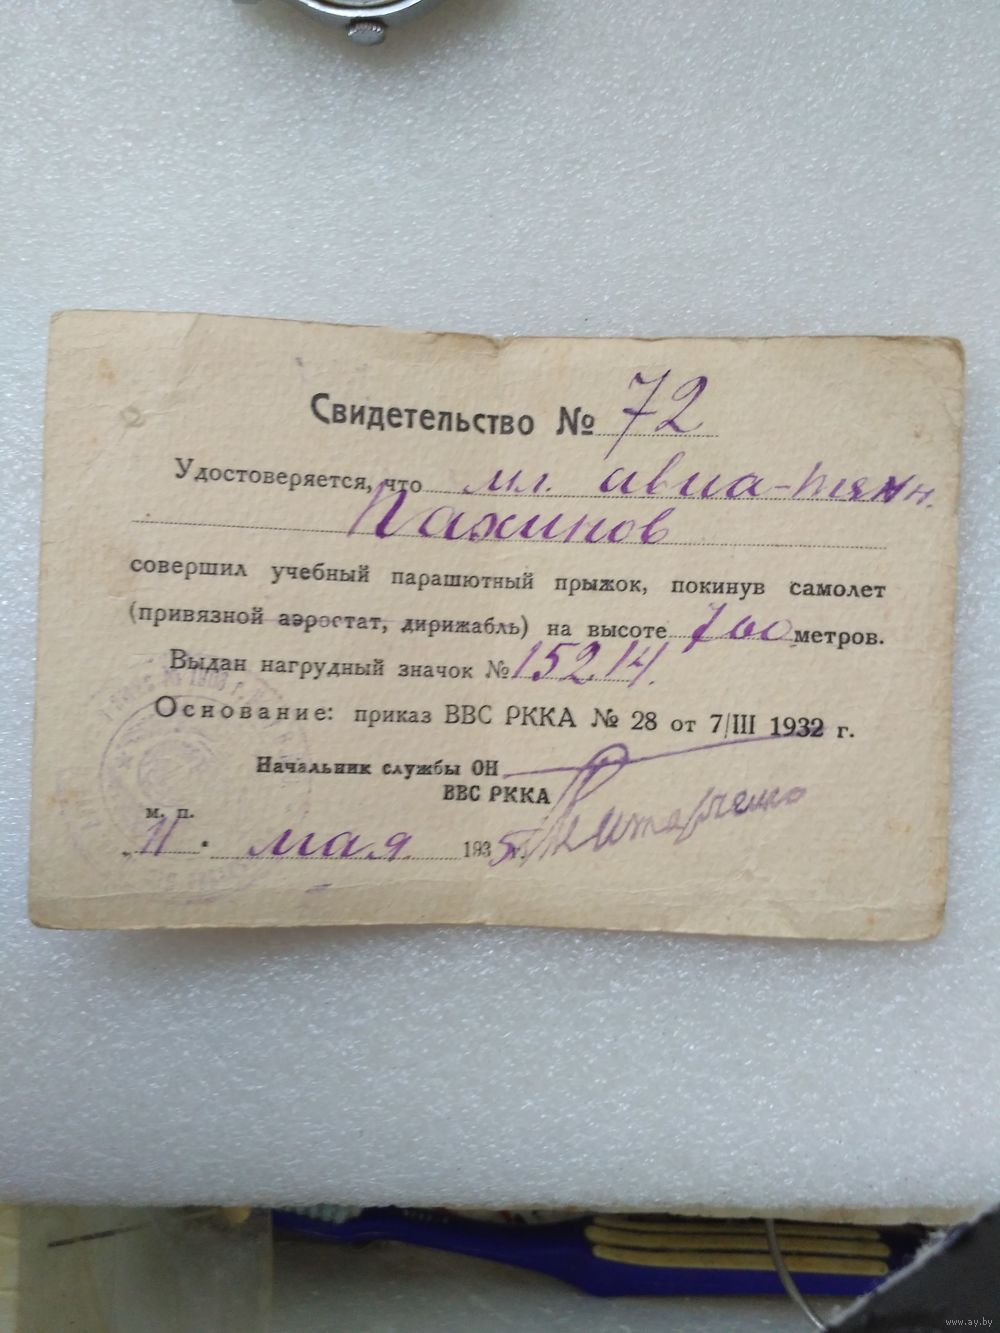 Свидетельство № 72
Удостоверяется, что мл. авиа-техн.
Пахинов
совершил учебный парашютный прыжок, покинув самолет
(привязной аэростат, дирижабль) на высоте 700 метров.
Выдан нагрудный значок № 15214.
Основание: приказ ВВС РККА № 28 от 7/III 1932 г.
Начальник службы ОН
ВВС РККА
м. п.
„11" мая 1935 г.
www.ay.by